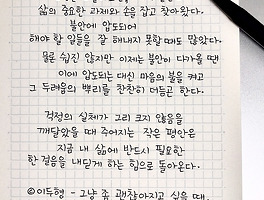 삶의 중요한 과제와 손을 잡고 찾아왔다.
불안에 압도되어
해야 할 일들을 잘 해내지 못할 때도 많았다.
물론 쉽진 않지만 이제는 불안이 다가올 때면
이에 압도되는 대신 마음의 불을 켜고
그 두려움의 뿌리를 찬찬히 더듬곤 한다.
걱정의 실체가 그리 크지 않음을
깨달았을 때 주어지는 작은 평안은
지금 내 삶에 반드시 필요한
한 걸음을 내딛게 하는 힘으로 돌아온다.
©이두형 - 그냥 좀 괜찮아지고 싶을 때.